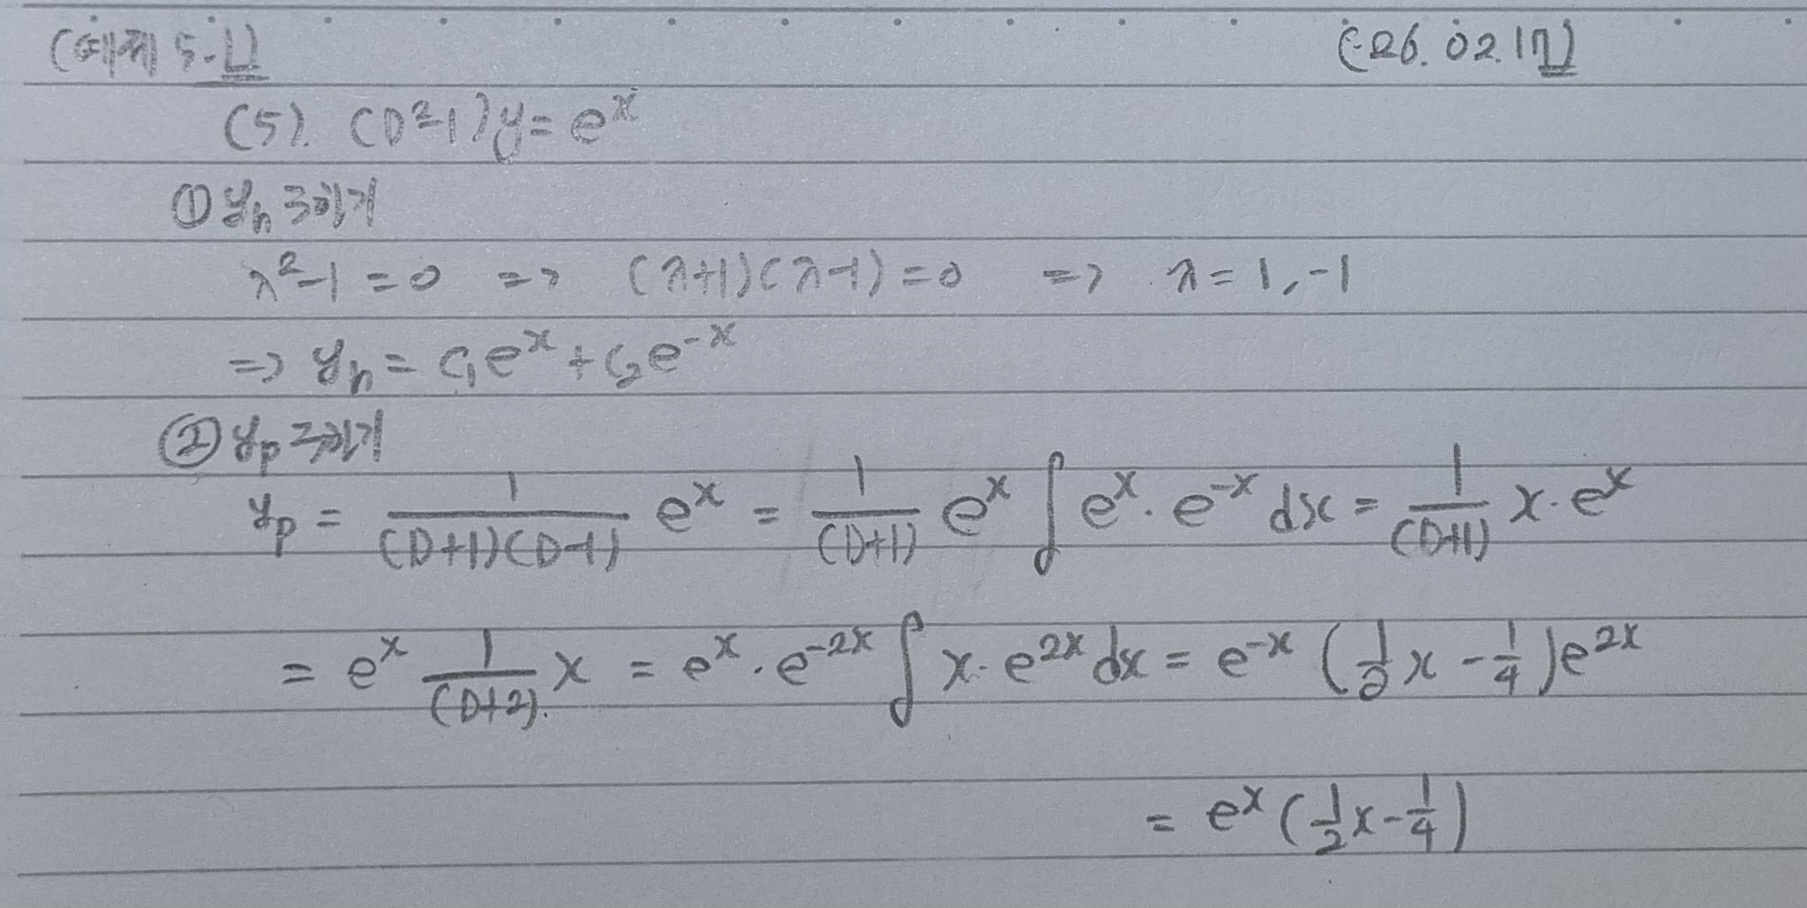 (예제 5-1) ('26.02.17)
(5). (D²-1)y = eˣ
① yₕ 구하기
λ²-1 = 0 => (λ+1)(λ-1) = 0 => λ = 1, -1
=> yₕ = c₁eˣ + c₂e⁻ˣ
② yₚ 구하기
yₚ = 1/((D+1)(D-1)) eˣ = 1/(D+1) eˣ ∫ eˣ · e⁻ˣ dx = 1/(D+1) x · eˣ
= eˣ 1/(D+2) x = eˣ · e⁻²ˣ ∫ x · e²ˣ dx = e⁻ˣ (1/2 x - 1/4) e²ˣ
= eˣ (1/2 x - 1/4)